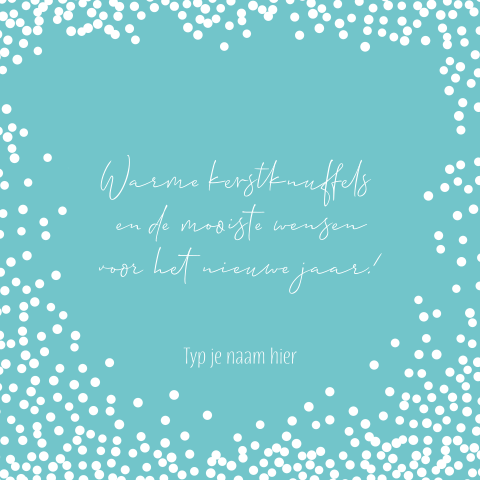 Warme kerstknuffels
en de mooiste wensen
voor het nieuwe jaar!
Typ je naam hier